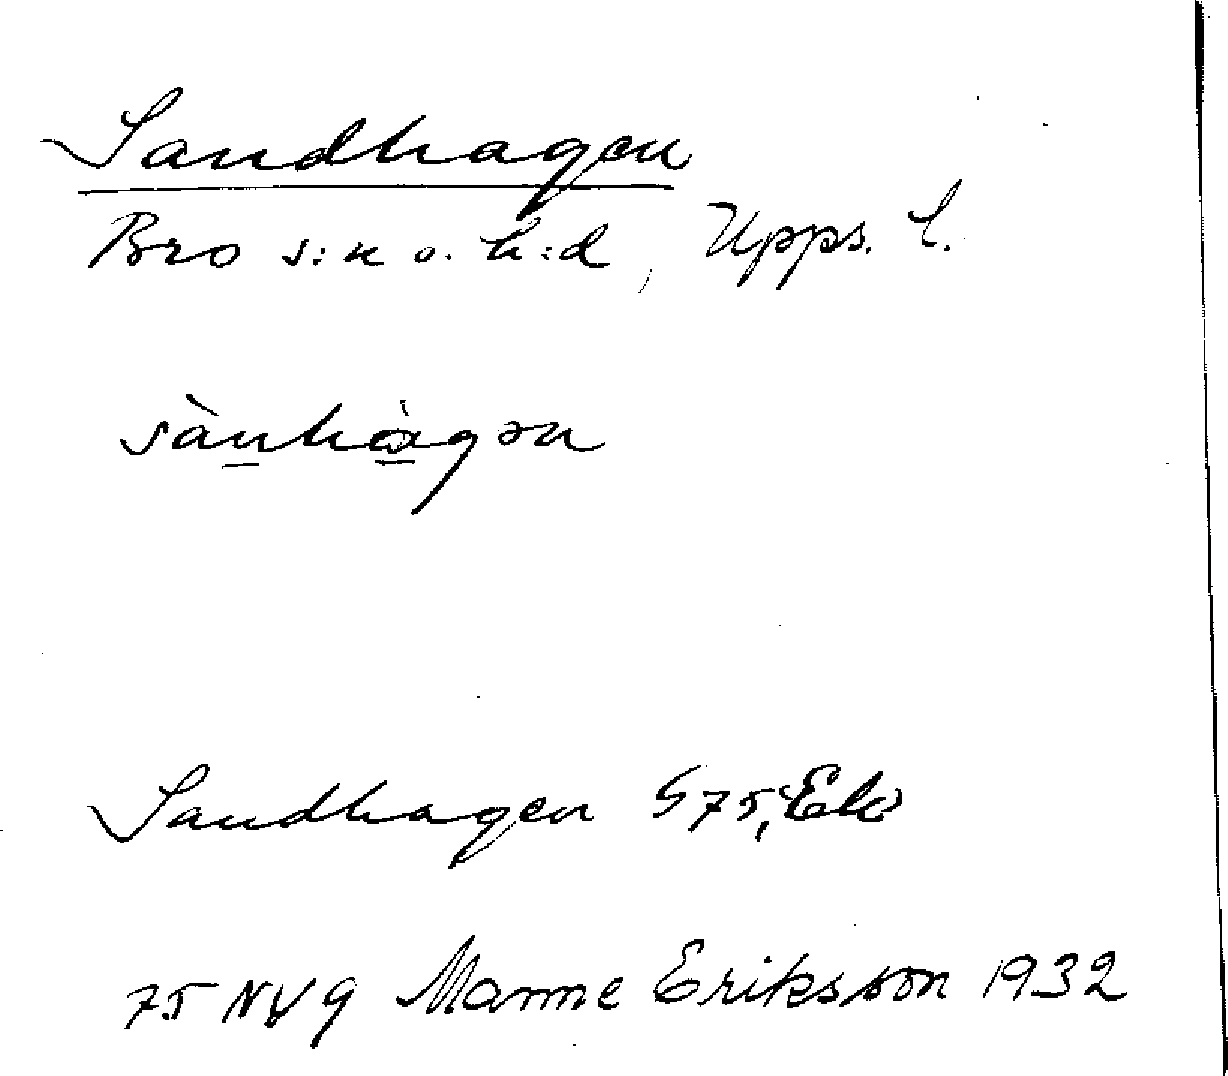 Sandhagen
Bro s:n o. h:d, Upps. l.
sànhàgən
Sandhagen S75, Ek
75 NV 9 Manne Eriksson 1932